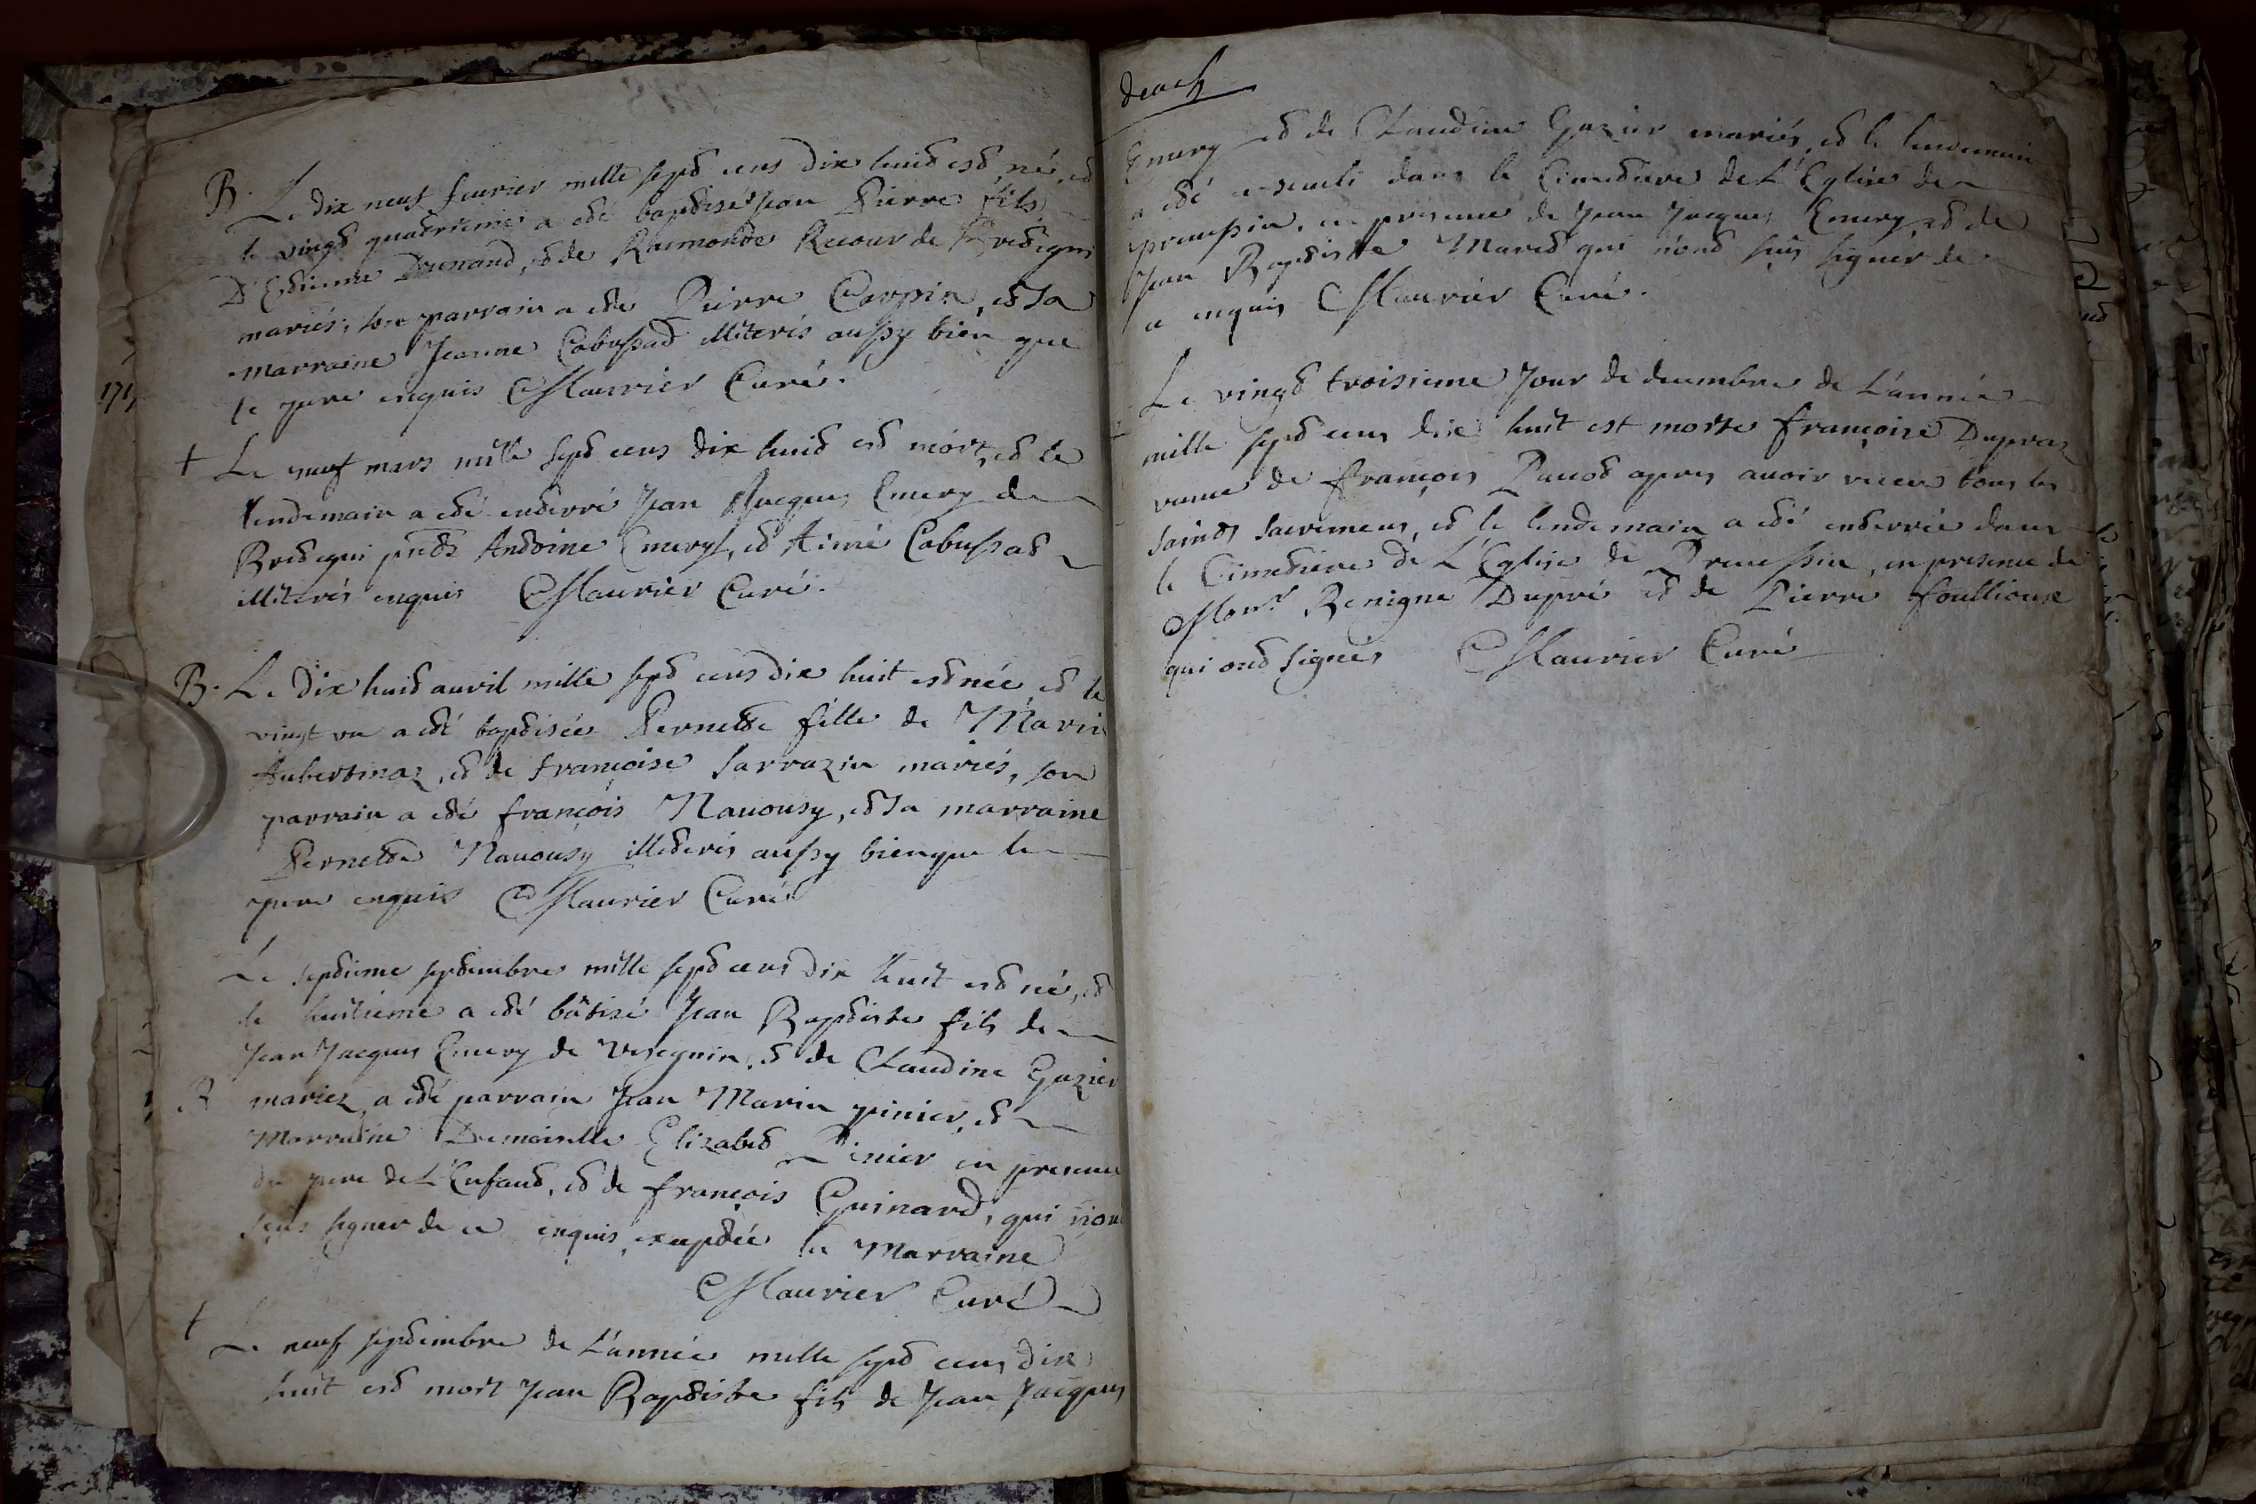 B. Le dix neuf feurier mille sept cens dix huit est né, et
le vingt quatrieme a eté baptisé Jean Pierre fils
D'Estienne Durnand, et de Raimonde Recour de Bretegni
mariés, son parrain a eté Pierre Carpin, et sa
marraine Jeanne Cabussat illiterés aussy bien que
le pere enquis Maurier Curé.
† Le neuf mars mille sept cens dix huit est mort, et le
lendemain a eté enterré Jean Jacques Emery de
Bretegni pnts Antoine Emery, et Aimé Cabussat
illiterés enquis Maurier Curé.
B. Le dix huit auril mille sept cens dix huit est née et le
vingt un a eté baptisée Pernette fille de Marin
Aubertinaz, et de françoise Sarrazin mariés, son
parrain a eté françois Nauousy, et sa marraine
Pernette Nauousy illeterés aussy bien que le
pere enquis Maurier Curé
Le septieme septembre mille sept cens dix huit est né, et
le huitieme a eté bâtisé Jean Baptiste fils de
Jean Jacques Emery de Vesegnin, et de Claudine Gazier
B mariez, a eté parrain Jean Marin pinier, et
Marraine Demoiselle Elizabet Pinier en presence
du pere de L'Enfant, et de françois Guinard, qui n'ont
sçus signer de ce enquis exeptée la Marraine
Maurier Curé
† Le neuf septembre de L'année mille sept cens dix
huit est mort Jean Baptiste fils de Jean Jacques
Emery et de Claudine Gazier mariés, et le lendemain
a eté enseueli dans le Cimetiere de L'Eglise de
preuessin, en presence de Jean Jacques Emery, et de
Jean Baptiste Maret qui n'ont sçus signer de
ce enquis Maurier Curé.
Le vingt troisieme Jour de decembre de L'année
mille sept cens dix huit est morte françoise Dupraz
veuue de françois Pauot apres auoir receu tous les
saints sacremens, et le lendemain a eté enterrée dans
le Cimetiere de L'Eglise de Preuessin, en presence de
Monsr. Benigne Dupré et de Pierre foulliouse
qui ont signés Maurier Curé